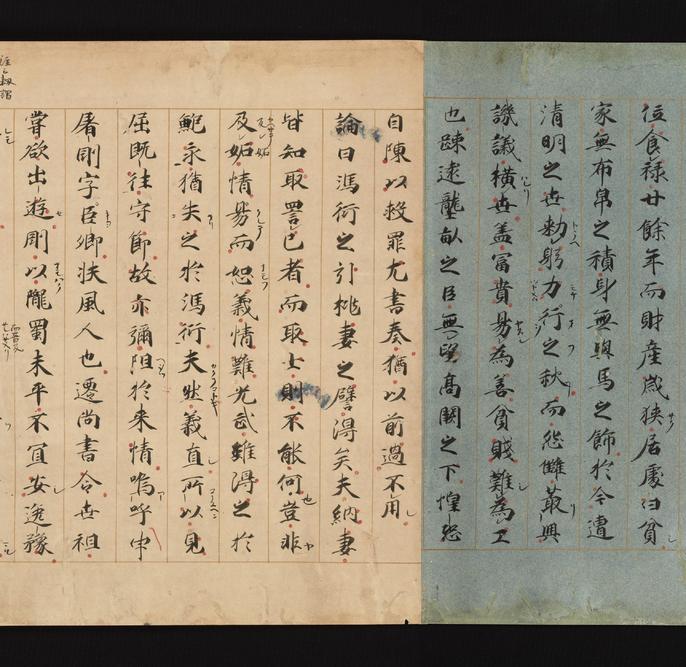 位食禄廿餘年而財産歳狭居處日貧
家無布帛之積身無輿馬之飾於今遭
清明之世勅躬力行之秋而怨讎叢興
譏議横世盖冨貴易為善貧賤難為工
也踈逺壟畝之臣無望髙闕之下惶恐
自陳以救罪尤書奏猶以前過不用
論曰馮衍之引桃妻之譬得矣夫納妻
皆知取詈己者而取士則不能何豈非
及妬情易而恕義情難光武雖得之於
鮑永猶失之於馮衍夫然義直所以見
屈既徃守節故亦彌阻於来情嗚呼申
屠剛字臣卿扶風人也遷尚書令世祖
嘗欲出遊剛以隴蜀未平不宜安逸豫